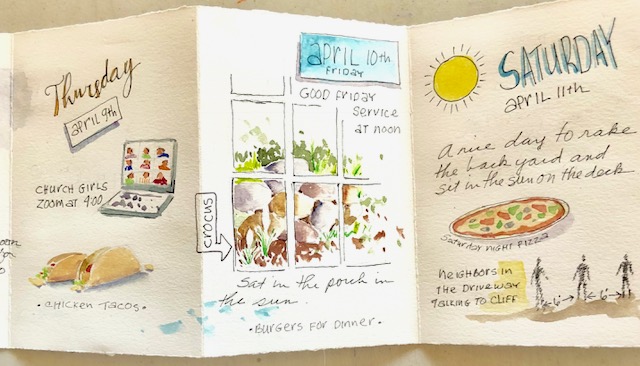 Thursday
april 9th
CHURCH GIRLS
ZOOM at 4:00
• CHICKEN TACOS •
april 10th
FRIDAY
GOOD FRIDAY
SERVICE
at NOON
CROCUS
Sat in the porch in
the sun.
• BURGERS FOR DINNER •
SATURDAY
april 11th
A nice day to rake
the back yard and
sit in the sun on the deck
Saturday Night Pizza
NEIGHBORS IN
THE DRIVEWAY
TALKING TO CLIFF
6' 6'